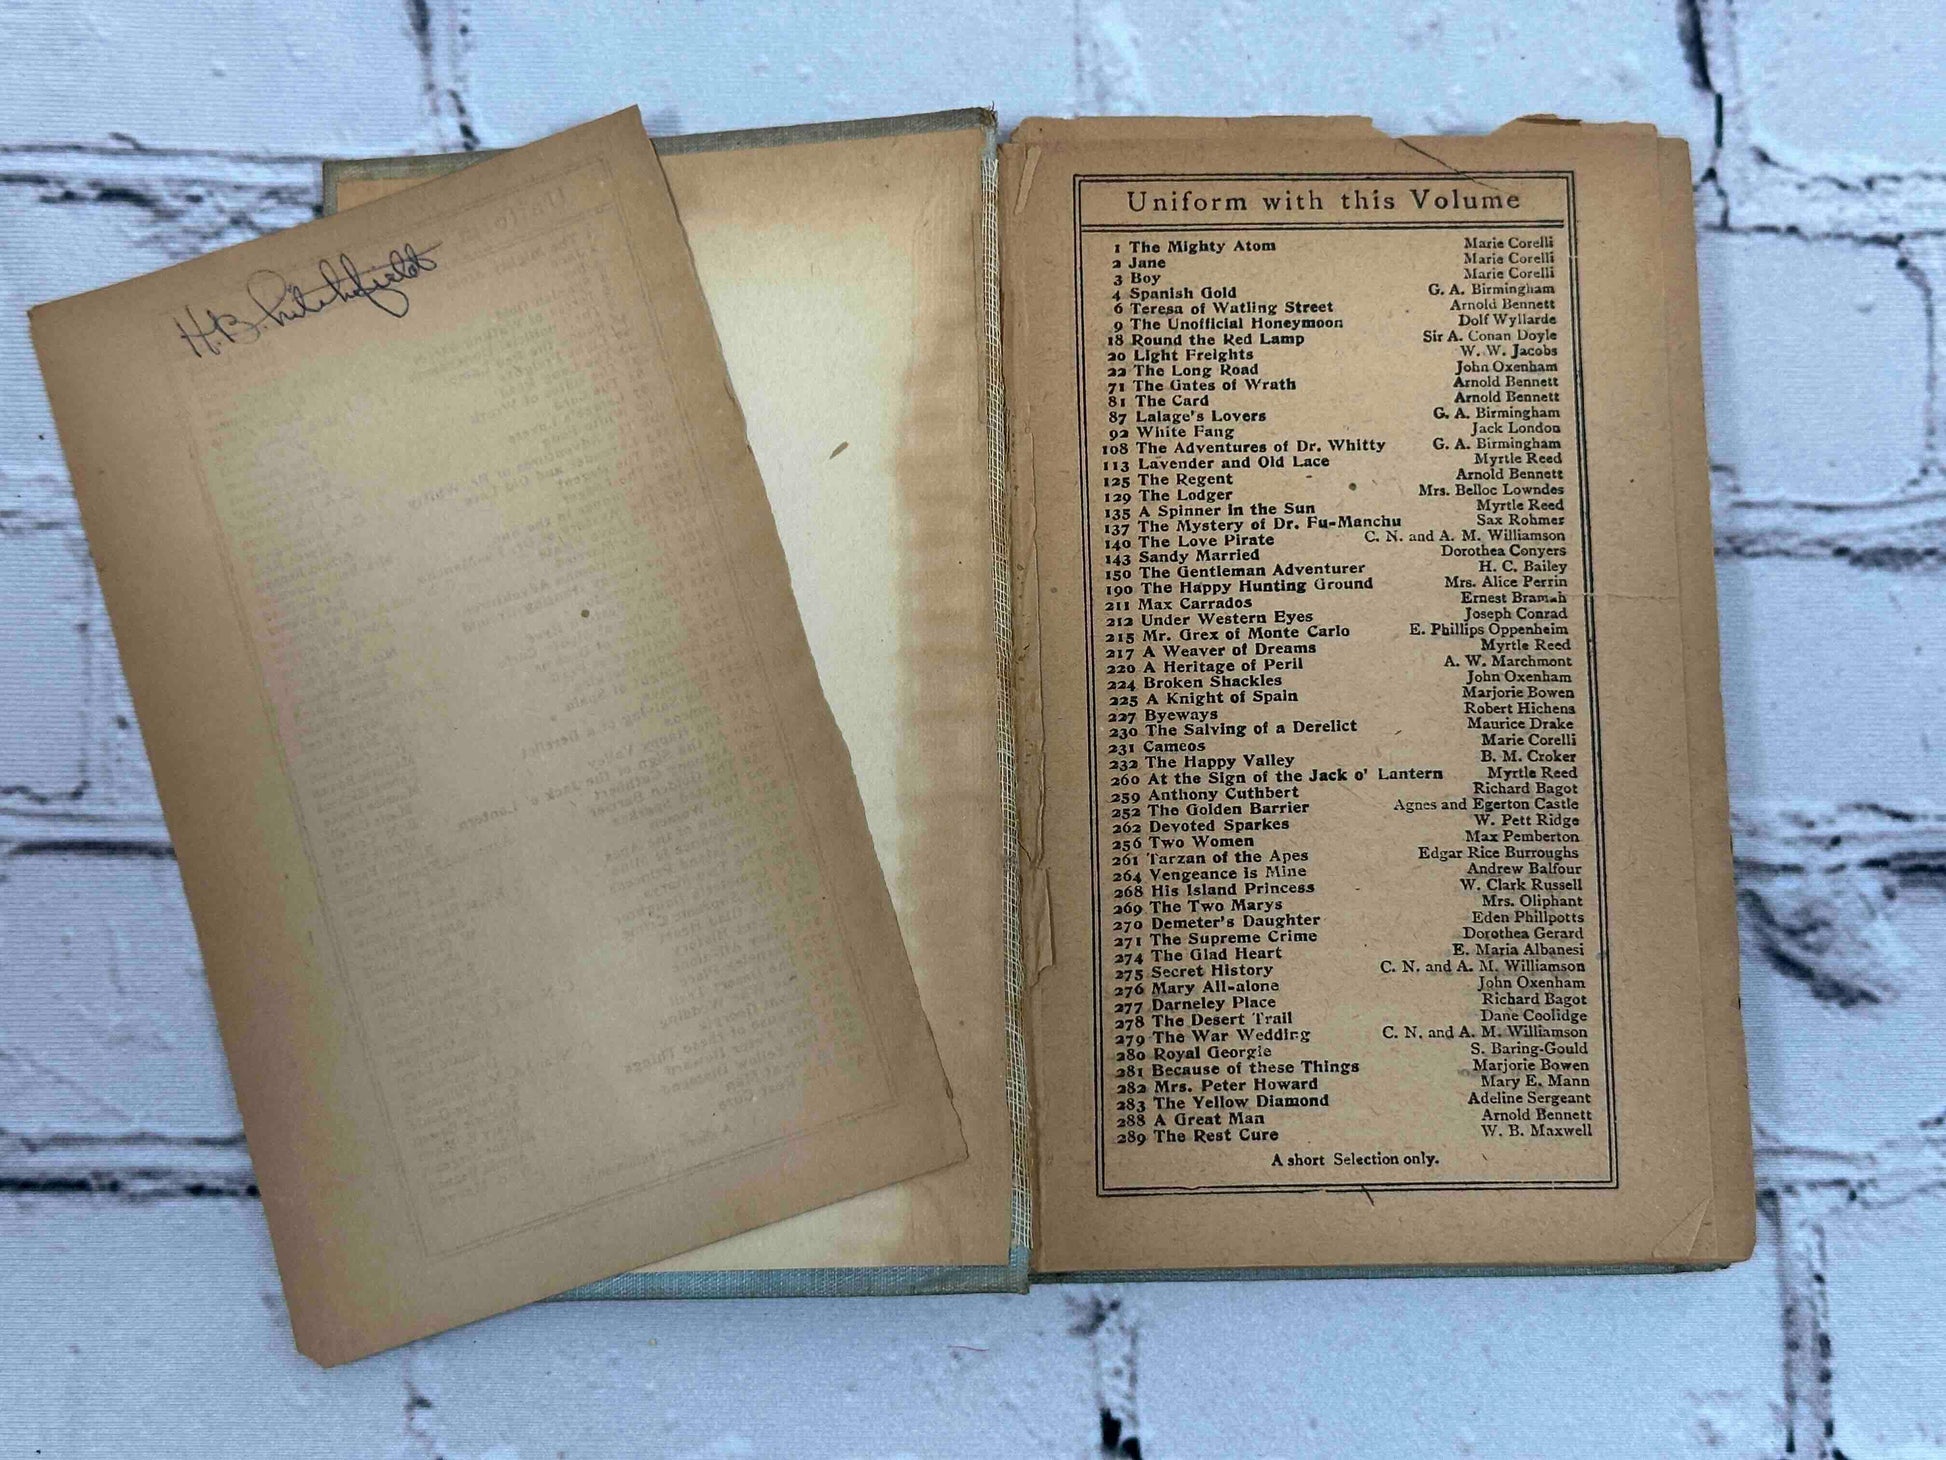 H.B. Litchfield
Uniform with this Volume
1 The Mighty Atom Marie Corelli
2 Jane Marie Corelli
3 Boy Marie Corelli
4 Spanish Gold G. A. Birmingham
6 Teresa of Watling Street Arnold Bennett
9 The Unofficial Honeymoon Dolf Wyllarde
18 Round the Red Lamp Sir A. Conan Doyle
20 Light Freights W. W. Jacobs
22 The Long Road John Oxenham
71 The Gates of Wrath Arnold Bennett
81 The Card Arnold Bennett
87 Lalage's Lovers G. A. Birmingham
92 White Fang Jack London
108 The Adventures of Dr. Whitty G. A. Birmingham
113 Lavender and Old Lace Myrtle Reed
125 The Regent Arnold Bennett
129 The Lodger Mrs. Belloc Lowndes
135 A Spinner in the Sun Myrtle Reed
137 The Mystery of Dr. Fu-Manchu Sax Rohmer
140 The Love Pirate C. N. and A. M. Williamson
143 Sandy Married Dorothea Conyers
150 The Gentleman Adventurer H. C. Bailey
190 The Happy Hunting Ground Mrs. Alice Perrin
211 Max Carrados Ernest Bramah
212 Under Western Eyes Joseph Conrad
215 Mr. Grex of Monte Carlo E. Phillips Oppenheim
217 A Weaver of Dreams Myrtle Reed
220 A Heritage of Peril A. W. Marchmont
224 Broken Shackles John Oxenham
225 A Knight of Spain Marjorie Bowen
227 Byeways Robert Hichens
230 The Salving of a Derelict Maurice Drake
231 Cameos Marie Corelli
232 The Happy Valley B. M. Croker
260 At the Sign of the Jack o' Lantern Myrtle Reed
259 Anthony Cuthbert Richard Bagot
252 The Golden Barrier Agnes and Egerton Castle
262 Devoted Sparkes W. Pett Ridge
256 Two Women Max Pemberton
261 Tarzan of the Apes Edgar Rice Burroughs
264 Vengeance is Mine Andrew Balfour
268 His Island Princess W. Clark Russell
269 The Two Marys Mrs. Oliphant
270 Demeter's Daughter Eden Phillpotts
271 The Supreme Crime Dorothea Gerard
274 The Glad Heart E. Maria Albanesi
275 Secret History C. N. and A. M. Williamson
276 Mary All-alone John Oxenham
277 Darneley Place Richard Bagot
278 The Desert Trail Dane Coolidge
279 The War Wedding C. N. and A. M. Williamson
280 Royal Georgie S. Baring-Gould
281 Because of these Things Marjorie Bowen
282 Mrs. Peter Howard Mary E. Mann
283 The Yellow Diamond Adeline Sergeant
288 A Great Man Arnold Bennett
289 The Rest Cure W. B. Maxwell
A short Selection only.